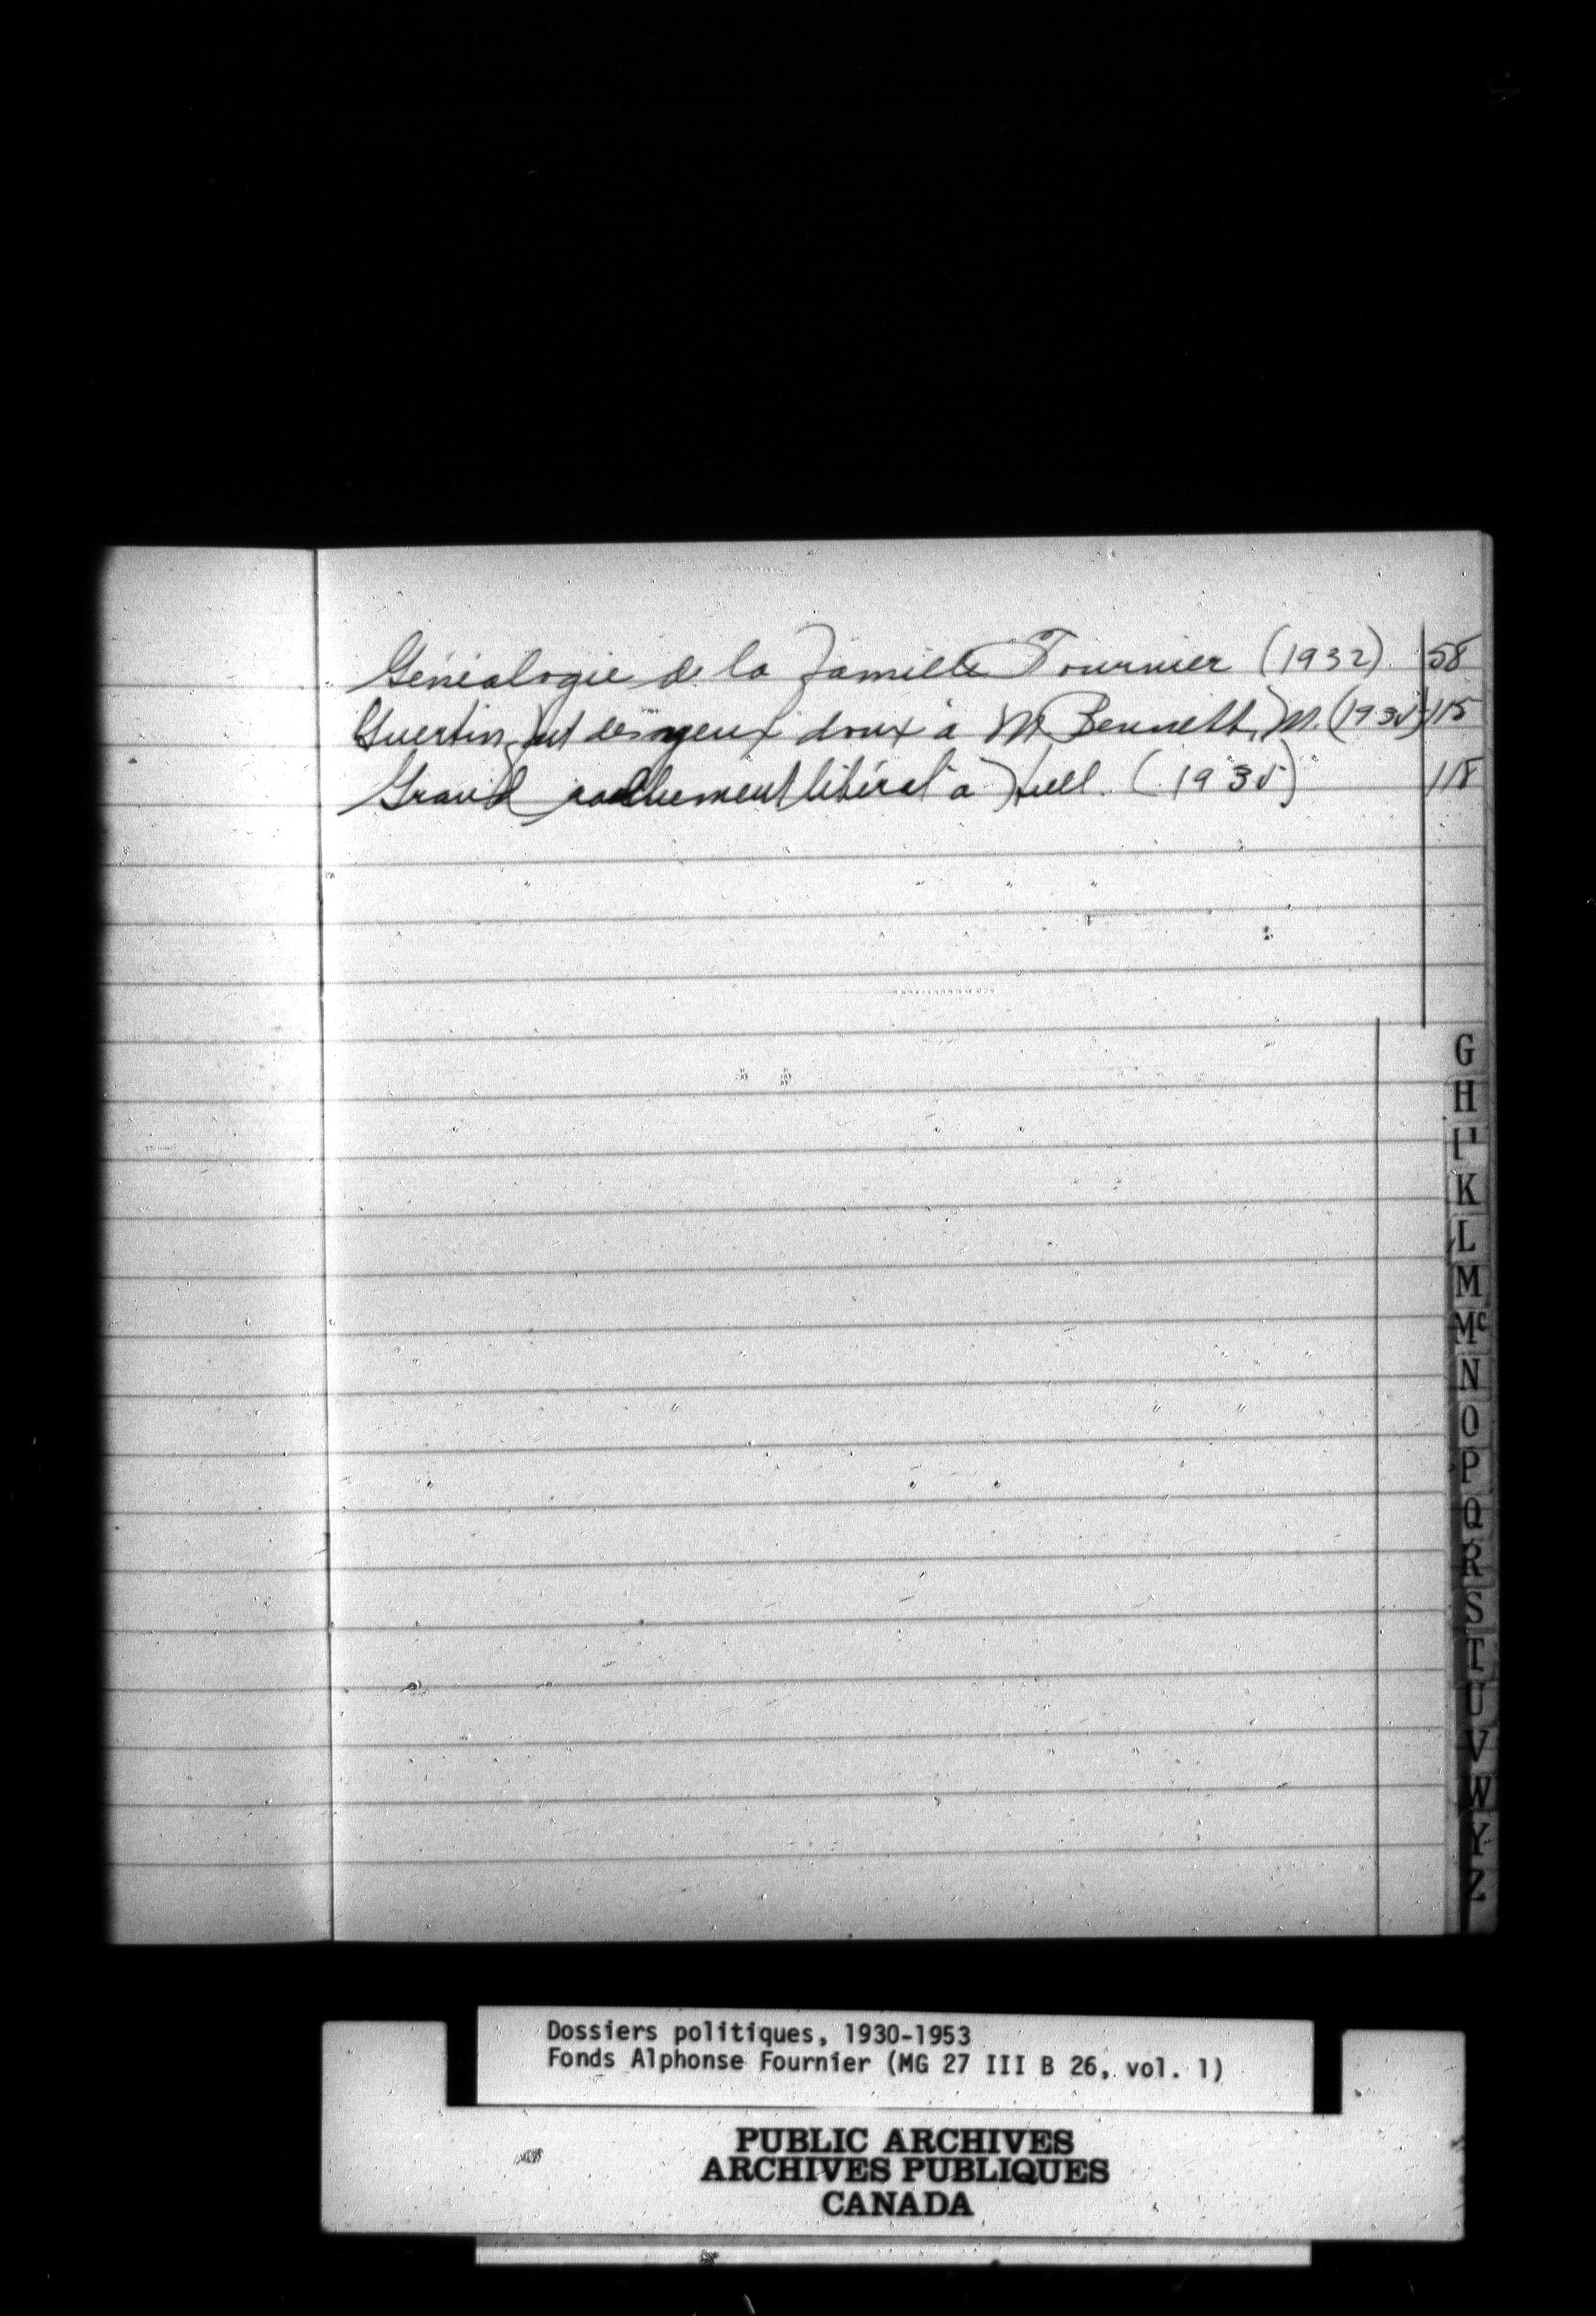 Généalogie de la famille Fournier (1932) 58
Guertin fut des yeux doux à M Bennett, M. (1935) 115
Grand ralliement libéral à Hull. (1935) 118
G
H
K
L
M
Mc
N
O
P
Q
R
S
T
U
V
W
Y
Z
Dossiers politiques, 1930-1953
Fonds Alphonse Fournier (MG 27 III B 26, vol. 1)
PUBLIC ARCHIVES
ARCHIVES PUBLIQUES
CANADA